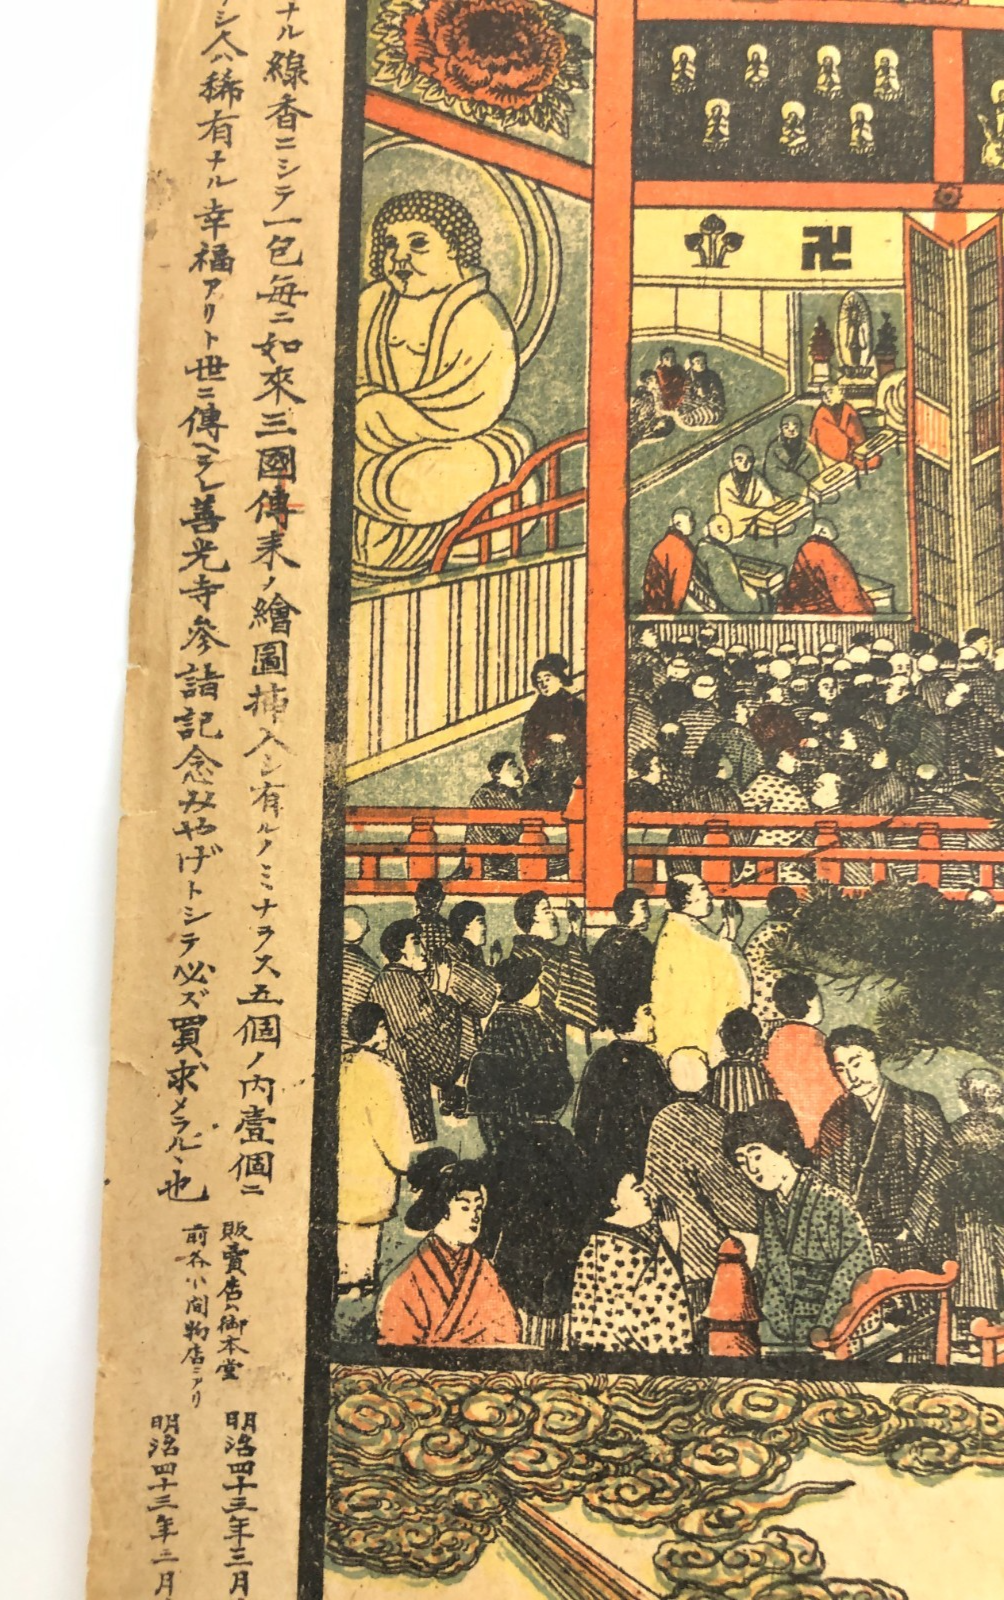 ナル線香ニシテ一包毎ニ如來三國傳来ノ繪圖挿入シ有ルノミナラス五個ノ内壹個ニ
シ人ハ稀有ナル幸福アリト世ニ傳ヘラレ善光寺參詣記念みやげトシテ必ズ買求メラルベキ也
販賣店ハ御本堂
前各小間物店ニアリ
明治四十三年三月
明治四十三年二月
卍